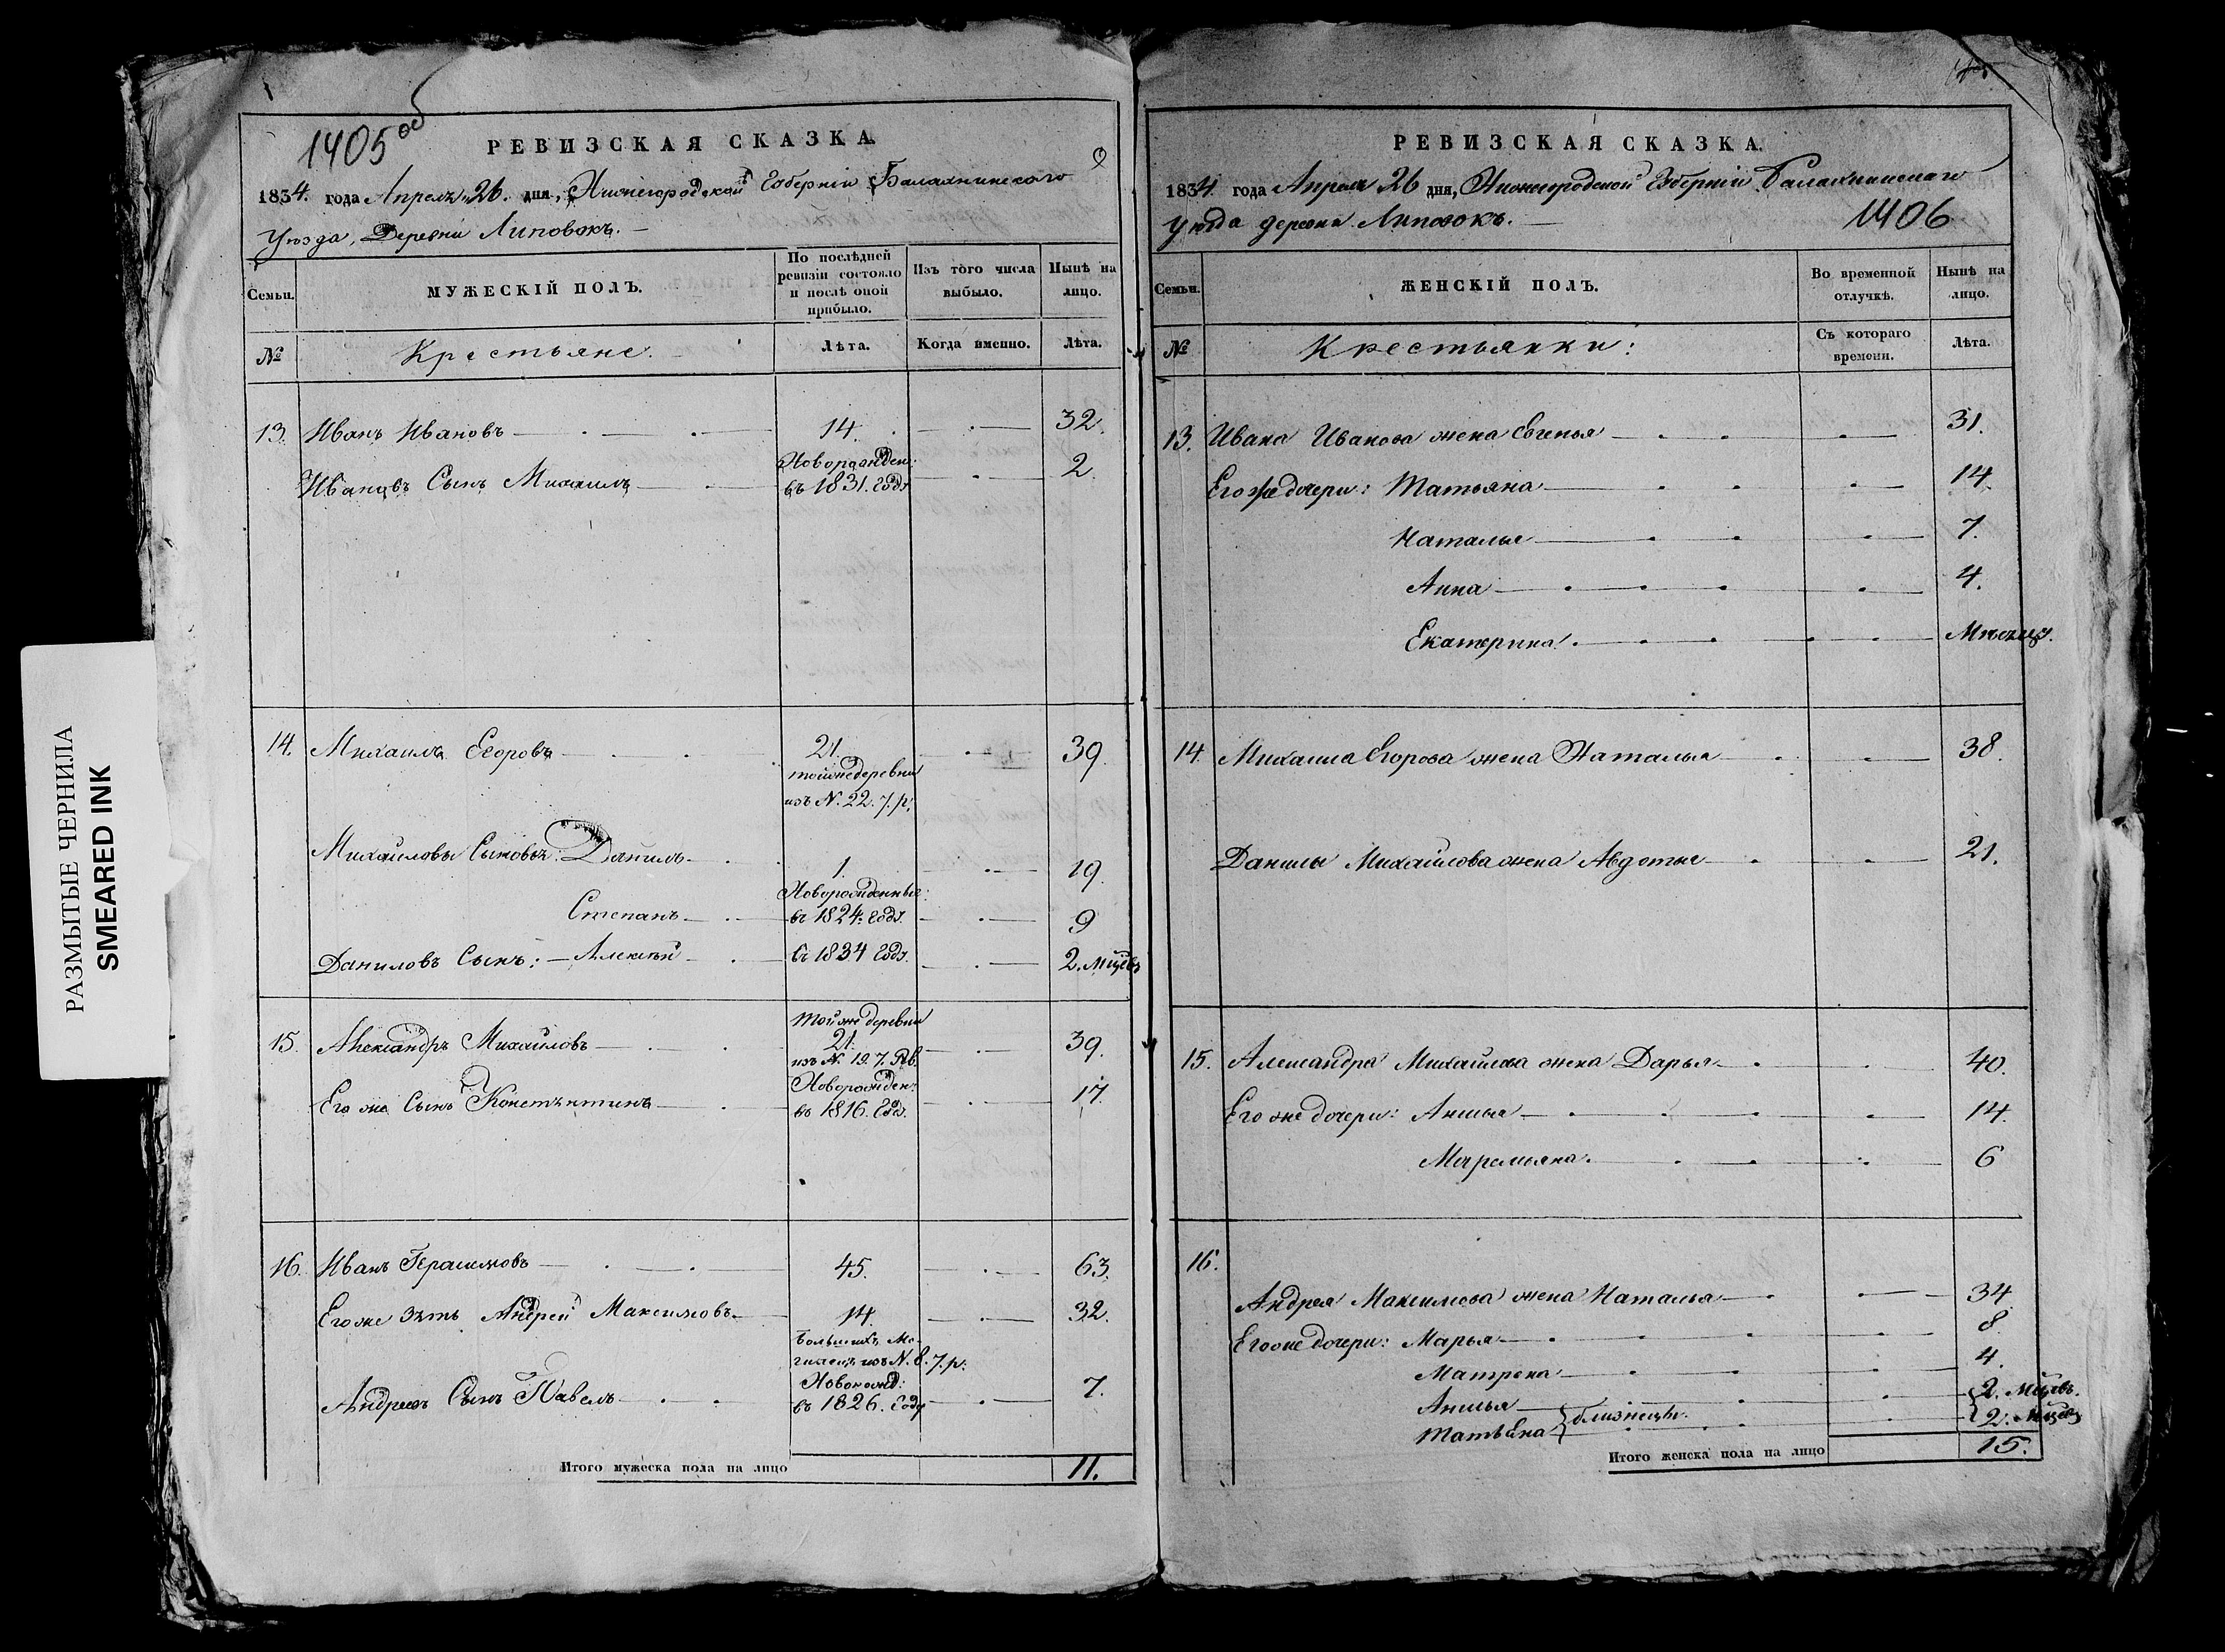 РАЗМЫТЫЕ ЧЕРНИЛА
SMEARED INK
1405 об
РЕВИЗСКАЯ СКАЗКА.
1834. года Апреля 26. дня, Нижегородской Губерніи Балахнинского
Уѣзда, Деревни Липовокъ.
Семьи.
МУЖЕСКІЙ ПОЛЪ.
По послѣдней ревизіи состояло и послѣ оной прибыло.
Изъ того числа выбыло.
Нынѣ на лицо.
№
Крестьяне.
Лѣта.
Когда именно.
Лѣта.
13. Иванъ Ивановъ 14. 32.
Ивановъ Сынъ Михаилъ Новорожден: въ 1831. Году 2.
14. Михаилъ Егоровъ 21. 39.
той же деревни
изъ N. 22. 7. р:
Михайловы Сыновья: Данилъ 1. 19.
Степанъ Новорожденные: въ 1824: Году. 9
Даниловъ Сынъ: Алексѣй въ 1834 Году. 2. мцѣвъ
той же деревни
15. Александръ Михайловъ 21. 39.
изъ N. 19. 7. Рев.
Его же Сынъ Константинъ Новорожден: въ 1816. Году. 17.
16. Иванъ Герасимовъ 45. 63.
Его же Зять Андрей Максимовъ 14. 32.
Большихъ Мо-
гилецъ изъ N. 8. 7. р:
Андреевъ Сынъ Павелъ Новорожд: въ 1826. Году 7.
Итого мужеска пола на лицо 11.
РЕВИЗСКАЯ СКАЗКА.
1834. года Апреля 26 дня, Нижегородской Губерніи Балахнинскаго
уѣзда деревни Липовокъ.
1406
Семьи.
ЖЕНСКІЙ ПОЛЪ.
Во временной отлучкѣ.
Нынѣ на лицо.
№
Крестьянки:
Съ котораго времени.
Лѣта.
13. Ивана Иванова жена Евгенья 31.
Его же дочери: Татьяна 14.
Наталья 7.
Анна 4.
Екатерина. Мѣсяцъ.
14. Михаила Егорова жена Наталья 38.
Данилы Михайлова жена Авдотья 21.
15. Александра Михайлова жена Дарья 40.
Его же дочери: Анисья 14.
Маремьяна. 6
16.
Андрея Максимова жена Наталья 34
Его же дочери: Марья 8.
Матрена 4.
Анисья 2. Мцѣвъ.
Татьяна близнецы. 2. Мцѣвъ
Итого женска пола на лицо 15.